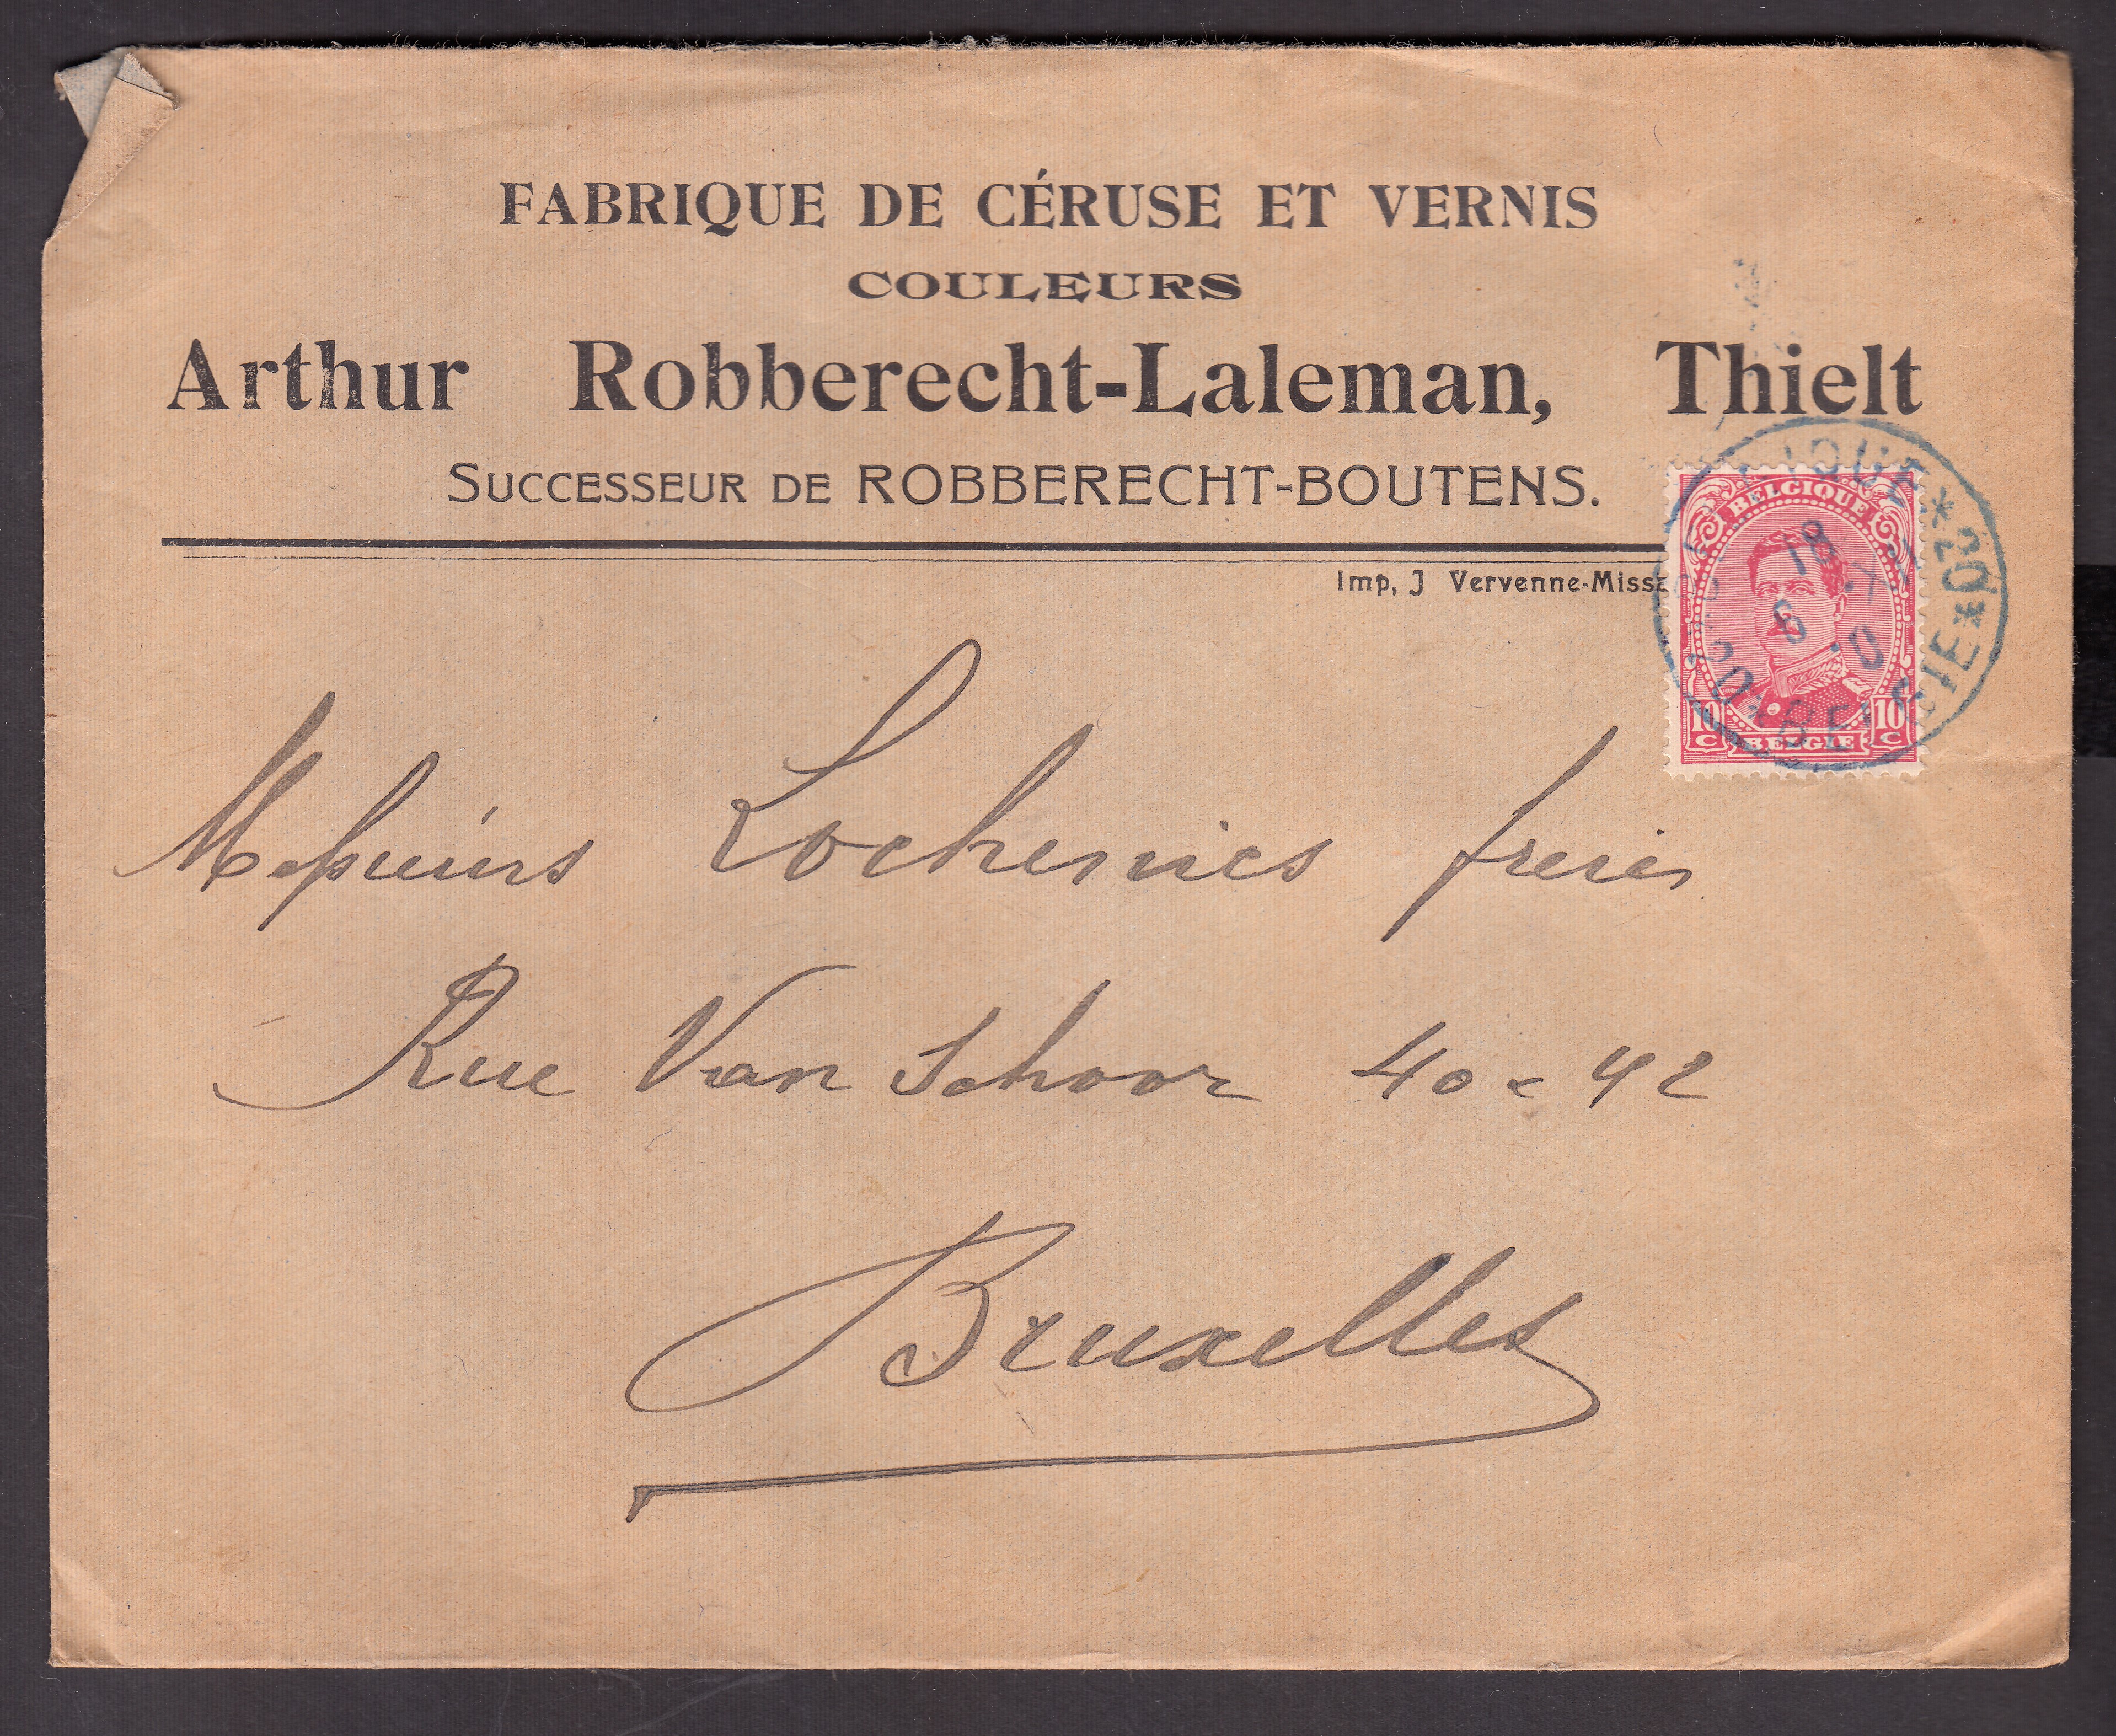 FABRIQUE DE CÉRUSE ET VERNIS
COULEURS
Arthur Robberecht-Laleman, Thielt
SUCCESSEUR DE ROBBERECHT-BOUTENS.
Imp, J Vervenne-Miss
BELGIQUE
10 C BELGIE 10 C
*20*
18
6
Messieurs Lochenies freres
Rue Van Schoor 40 & 42
Bruxelles